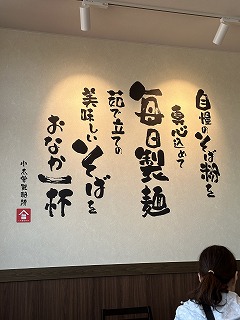 自慢のそば粉を
真心込めて
毎日製麺
茹で立ての
美味しいそばを
おなか一杯
小木曽製粉所